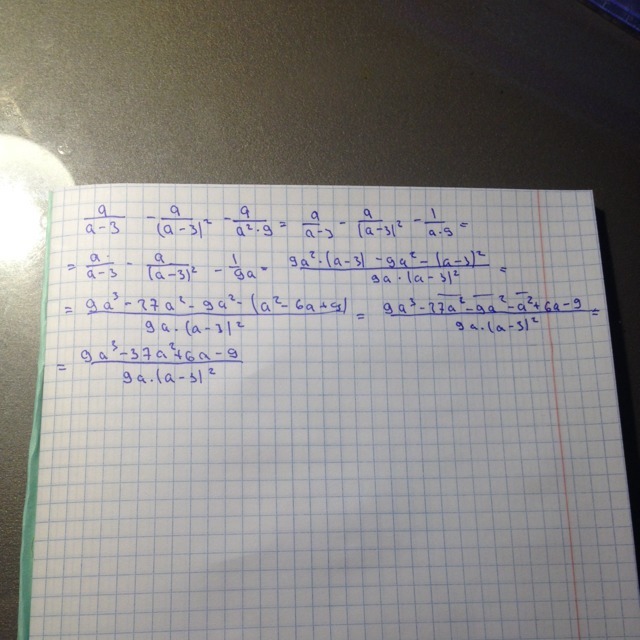 a/(a-3) - a/(a-3)² - a/(a²·9) = a/(a-3) - a/(a-3)² - 1/(a·9) =
= a/(a-3) - a/(a-3)² - 1/(9a) = (9a²·(a-3) - 9a² - (a-3)²)/(9a·(a-3)²) =
= (9a³-27a²-9a²-(a²-6a+9))/(9a·(a-3)²) = (9a³-27a²-9a²-a²+6a-9)/(9a·(a-3)²) =
= (9a³-37a²+6a-9)/(9a·(a-3)²)